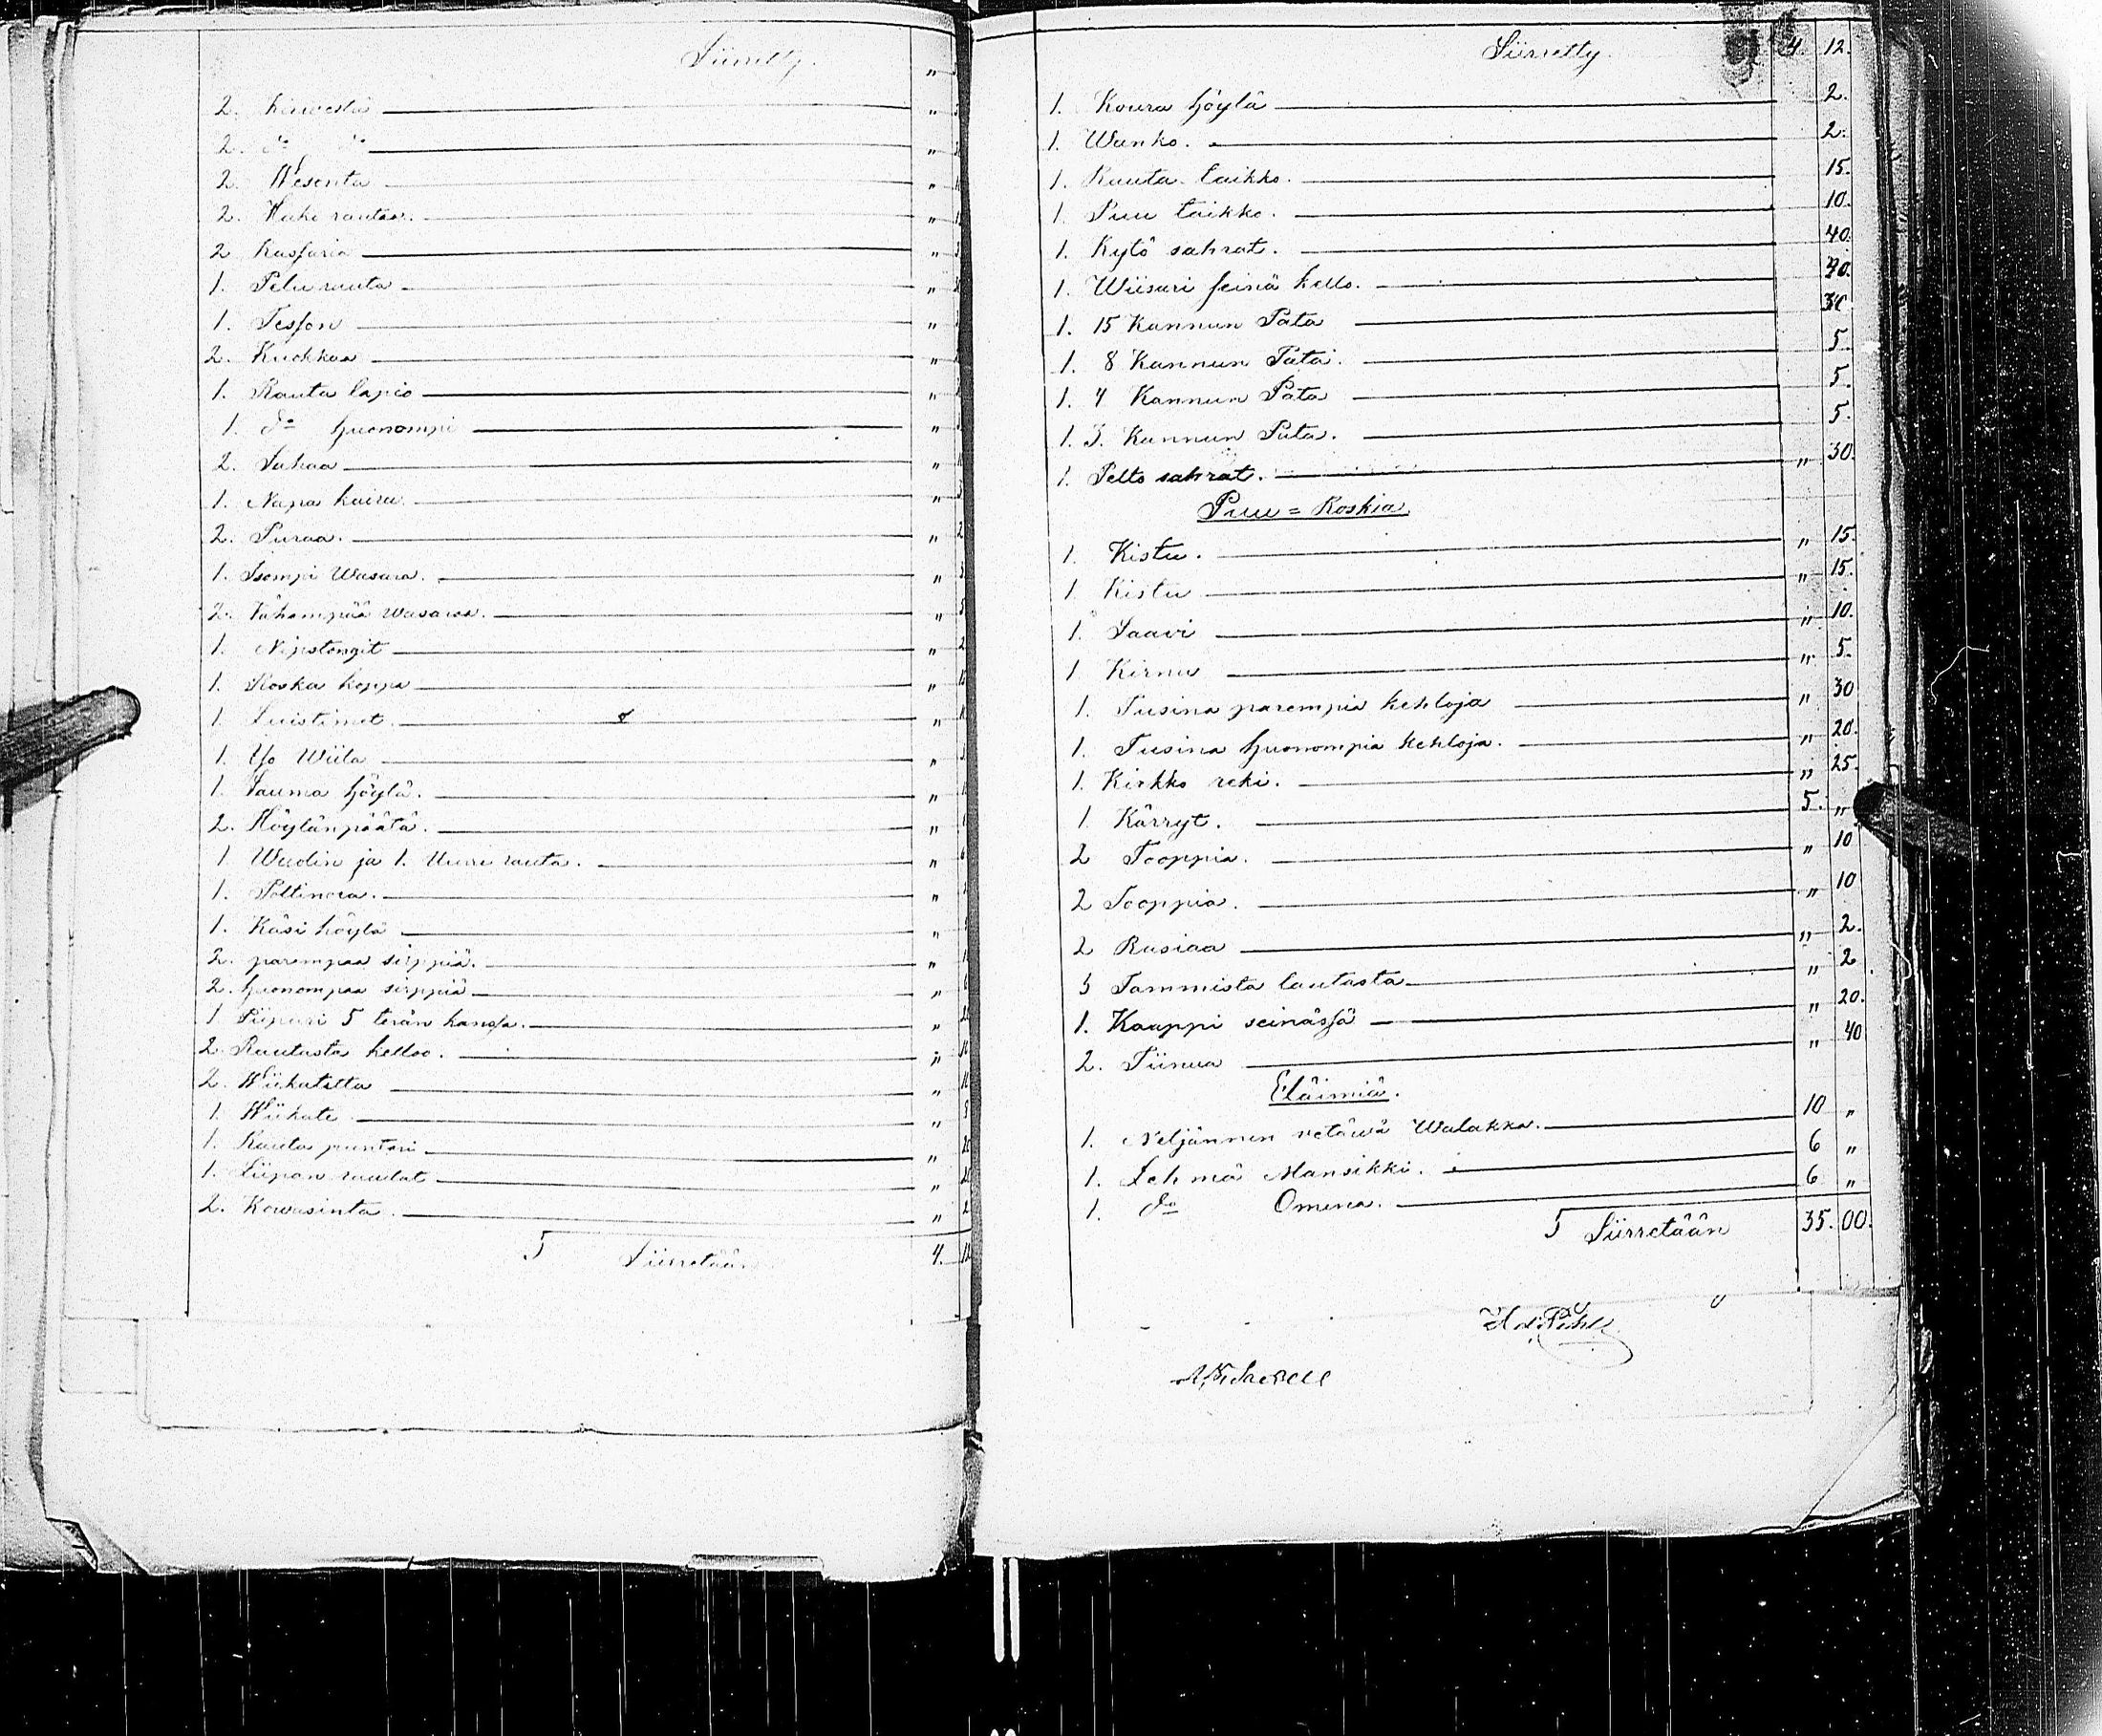 Siirretty.
2. Kirwestä
2. do do
2. Wesenta
2. Hako rautaa.
2 Kasfaria
1. Pelu rauta
1. Tesfon
2. Kuokkaa
1. Rauta lapio
1. do huonompi
2. Sahaa
1. Napa kaira.
2. Puraa.
1. Isompi Wasara.
2. Vähempää wasaraa.
1. Nipstongit
1. Koska koppa
1. Luistimet.
1. Yo Wiila
1. Sauma höylä.
2. Höylänpäätä.
1 Wuolin ja 1. Uurre rauta.
1. Polttinora.
1. Käsi höylä
2. parempaa sirppiä.
2. huonompaa sirppiä
1 Piipuri 5 terän kansfa.
2. Rautasta kelloo.
2. Wiikatetta
1. Wiikate
1. Rauta puntari
1. Liipan raudat
2. Kowasinta.
5 Siirretään 4.
Siirretty. 4 12.
1. Koura höylä 2.
1. Wanko. 2.
1. Rauta taikko. 15.
1. Puu taikko. 10.
1. Kytö sahrat. 40.
1. Wiisari seinä kello. 40.
1. 15 Kannun Pata 30
1. 8 Kannun Pata. 5.
1. 4 Kannun Pata 5.
1. 3. Kannun Pata. 5.
1. Pelto sahrat. " 30.
Puu = Roskia.
1. Kistu. " 15.
1 Kistu " 15.
1. Saavi " 10.
1 Kirnu " 5.
1. Tusina parempia kehloja " 30
1. Tusina huonompia kehloja. " 20.
1. Kirkko reki. " 25.
1. Kärryt. 5. "
2 Tooppia. " 10
2 Tooppia. " 10
2 Rasiaa " 2.
3 Tammista lautasta " 2
1. Kaappi seinässä " 20.
2. Tiinua " 40
Eläimiä.
1. Neljännen vetäwä Walakka. 10 "
1. Lehmä Mansikki. 6 "
1. do Omena. 6 "
5 Siirretään 35. 00.